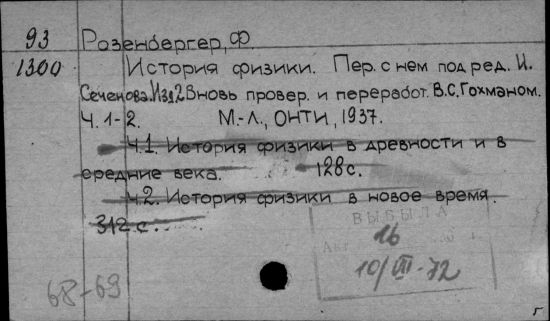 93 Розенбергер, Ф.
1300 История физики. Пер. с нем под ред. И.
Сеченова. Изд 2 вновь провер. и переработ. В.С. Гохманом.
Ч. 1-2. М.-Л., ОНТИ, 1937.
Ч.1. История физики в древности и в
средние века. 128 с.
Ч.2. История физики в новое время.
312 с.
ВЫБЫЛА
Акт 16
10/VIII-72
68-69
5